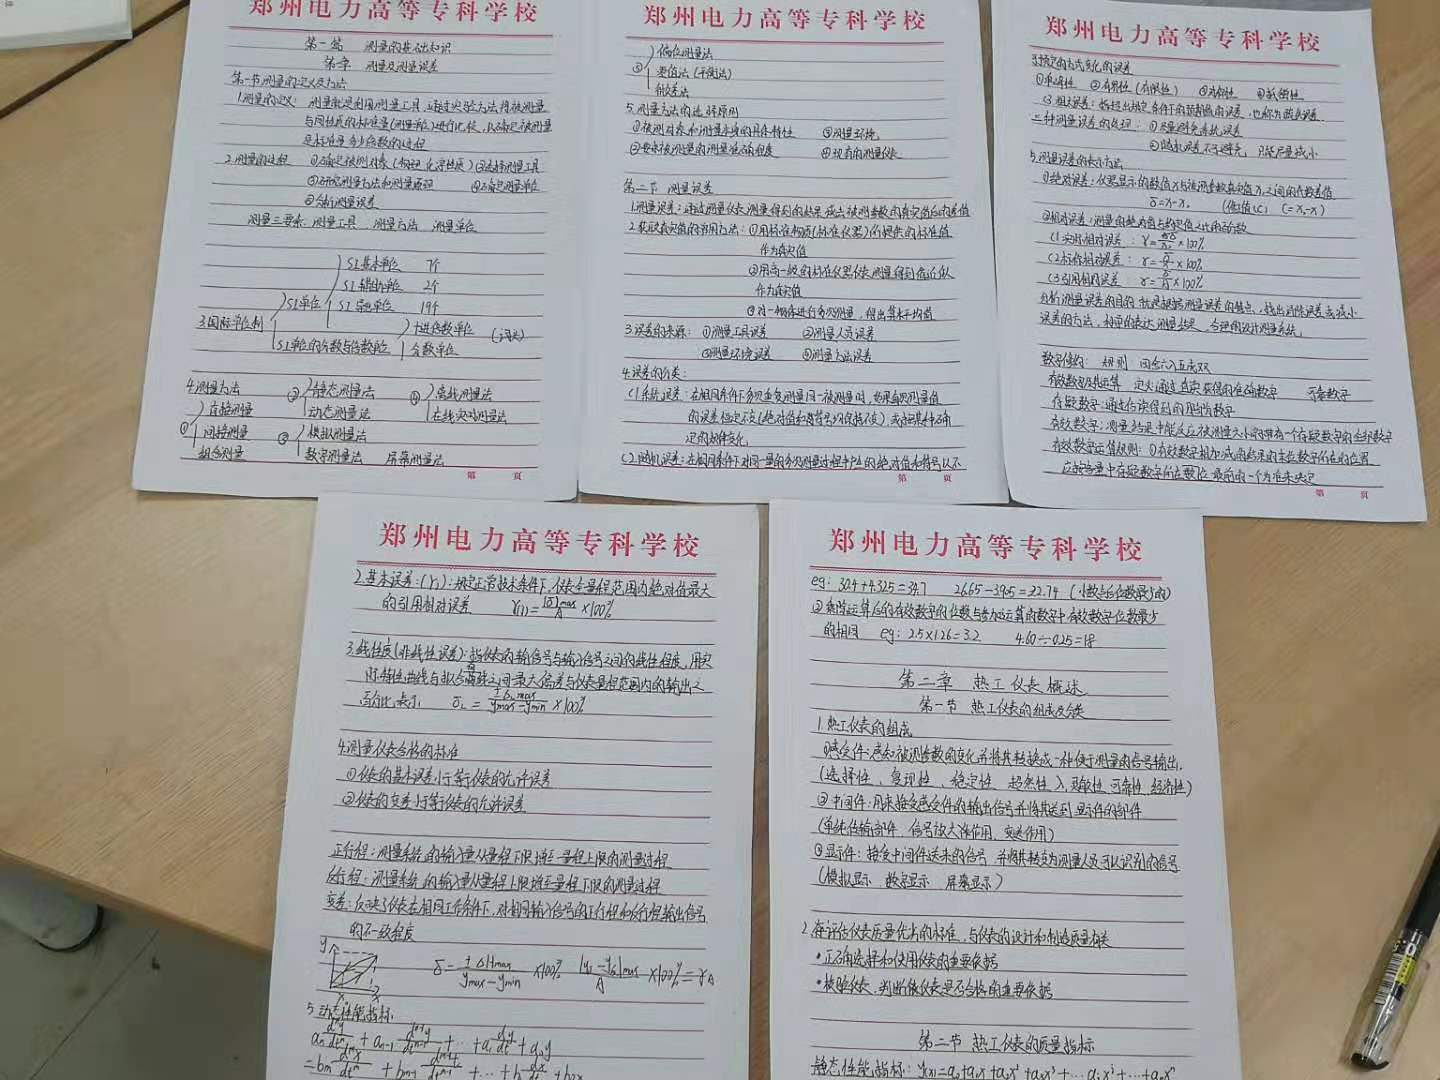 郑州电力高等专科学校
第一篇 测量的基础知识
第一章 测量及测量误差
第一节 测量的定义及方法
1.测量的定义: 测量就是利用测量工具,通过实验方法将被测量
与同性质的标准量(测量单位)进行比较,以确定被测量
是标准量多少倍数的过程
2.测量的过程 ①确定被测对象(物理 化学性质) ②选择测量工具
③研究测量方法和测量原理 ④确定测量单位
⑤分析测量误差
测量三要素: 测量工具 测量方法 测量单位
SI基本单位 7个
SI辅助单位 2个
SI单位 SI导出单位 19个
3.国际单位制 十进倍数单位
SI单位的分数与倍数单位 分数单位
4.测量方法 ② 静态测量法 ④ 离线测量法
直接测量 动态测量法 在线实时测量法
① 间接测量 ③ 模拟测量法
组合测量 数字测量法 屏幕测量法
第 页
郑州电力高等专科学校
偏位测量法
⑤ 零值法(平衡法)
微差法
5.测量方法的选择原则
①被测对象和测量参数的具体特性 ③测量环境
②要求被测量的测量准确程度 ④现有的测量仪表
第二节 测量误差
1.测量误差:通过测量仪表测量得到的结果或与被测参数的真实值的差值
2.获取真实值的常用方法:①用标准物质(标准仪器)所提供的标准值
作为真实值
②用高一级的标准仪器仪表测量得到值近似
作为真实值
③对一物体进行多次测量,得出算术平均值
3.误差的来源: ①测量工具误差 ②测量人员误差
③测量环境误差 ④测量方法误差
4.误差的分类:
(1.系统误差:在相同条件下多次重复测量同一被测量时,如果每次测量值
的误差恒定不变(绝对值和符号均保持不变)或按某种确
定的规律变化
(2.随机误差:在相同条件下对同一量的多次测量过程中产生的绝对值和符号以不
第 页
郑州电力高等专科学校
预定的方式变化的误差
①单峰性 ②有界性(有限性) ③对称性 ④抵偿性
(3.粗大误差:指超出规定条件下的预期的误差,也称为疏失误差
三种测量误差的处理: ①尽量避免系统误差
②随机误差不可避免,只能尽量减小
5.测量误差的表示方法
①绝对误差:仪器显示的数值x与被测参数真实值x₀之间的代数差值
δ=x-x₀ (修正值C) C=x₀-x)
②相对误差:测量的绝对值与约定值之比的百分数
(1.实际相对误差: γ=δ/x₀×100%
(2.标称相对误差: γ=δ/x×100%
(3.引用相对误差 γ=δ/A×100%
分析测量误差的目的 就是根据测量误差的特点,找出消除误差或减小
误差的方法,科学的表达测量结果,合理的设计测量系统。
数字修约: 规则 四舍六入五成双
有效数字及其运算 定义:通过直实获得的准确数字 可靠数字
存疑数字:通过估读得到的那部分数字
有效数字:测量结果中能反应被测量大小的带有一个存疑数字的全部数字
有效数字运算规则:①有效数字相加减的结果的末位数字所在的位置
应按各量中存疑数字所在数位最前的一个为准来决定
第 页
郑州电力高等专科学校
2.基本误差:(γⱼ):规定正常技术条件下,仪表全量程范围内绝对值最大
的引用相对误差 γⱼ=|δ|max/A×100%
3.线性度(非线性误差):指仪表的输出信号与输入信号之间的线性程度,用实
际特性曲线与拟合直线之间最大偏差与仪表量程范围内的输出之
百分比表示 δL=±ΔLmax/ymax-ymin×100%
4.测量仪表合格的标准
①仪表的基本误差小于等于仪表的允许误差
②仪表的变差小于等于仪表的允许误差
正行程:测量系统的输入量从量程下限增至量程上限的测量过程
反行程:测量系统的输入量从量程上限减至量程下限的测量过程
变差:反映了仪表在相同工作条件下,对相同输入信号的正行程和反行程输出信号
的不一致程度
y δ=±ΔHmax/ymax-ymin×100% |y₁-y₂|max/A×100%=γA
x
5.动态性能指标:
aₙdⁿy/dtⁿ+aₙ₋₁dⁿ⁻¹y/dtⁿ⁻¹+…+a₁dy/dt+a₀y
=bₘdᵐx/dtᵐ+bₘ₋₁
郑州电力高等专科学校
eg: 30.4+4.325=34.7 26.65-3.905=22.74 (小数点后位数最少的)
②乘除运算后的有效数字的位数与参加运算的数字中有效数字位数最少
的相同 eg: 2.5×1.26=3.2 4.60÷0.25=18
第二章 热工仪表概述
第一节 热工仪表的组成及分类
1.热工仪表的组成
①感受件:感知被测参数的变化并将其转换成一种便于测量的信号输出.
(选择性、复现性、稳定性、超然性、灵敏性、可靠性、经济性)
②中间件:用来接受感受件的输出信号并将其送到显示件的部件
(单纯传输部件、信号放大等作用、变送作用)
③显示件:接受中间件送来的信号,并将其转变为测量人员可以识别的信号
(模拟显示 数字显示 屏幕显示)
2.在评估仪表质量优劣的标准,与仪表的设计和制造质量有关
•正确选择和使用仪表的重要依据
•校验仪表、判断该仪表是否合格的重要依据
第二节 热工仪表的质量指标
静态性能指标: y(x)=a₀+a₁x+a₂x²+a₃x³+…aᵢxⁱ+…+aₙxⁿ